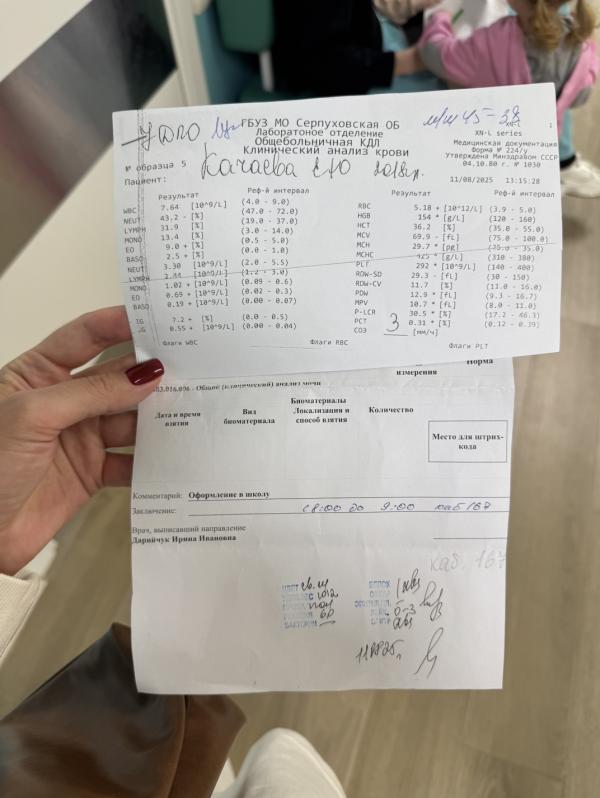 УДПО
м/ш 45-38
ГБУЗ МО Серпуховская ОБ
Лаборатоное отделение
Общебольничная КДЛ
Клинический анализ крови
XN-L
XN-L series
Медицинская документация
Форма № 224/у
Утверждена Минздравом СССР
04.10.80 г. № 1030
№ образца 5
Качаева 2018 г.
Пациент:
11/08/2025 13:15:28
Результат Реф-й интервал
WBC 7.64 [10^9/L] (4.0 - 9.0)
NEUT 43.2 - [%] (47.0 - 72.0)
LYMPH 31.9 [%] (19.0 - 37.0)
MONO 13.4 [%] (3.0 - 14.0)
EO 9.0 + [%] (0.5 - 5.0)
BASO 2.5 + [%] (0.0 - 1.0)
NEUT 3.30 [10^9/L] (2.0 - 5.5)
LYMPH 2.44 [10^9/L] (1.2 - 3.0)
MONO 1.02 + [10^9/L] (0.09 - 0.6)
EO 0.69 + [10^9/L] (0.02 - 0.3)
BASO 0.19 + [10^9/L] (0.00 - 0.07)
IG 7.2 + [%] (0.0 - 0.5)
IG 0.55 + [10^9/L] (0.00 - 0.04)
Результат Реф-й интервал
RBC 5.18 + [10^12/L] (3.9 - 5.0)
HGB 154 * [g/L] (120 - 160)
HCT 36.2 [%] (35.0 - 55.0)
MCV 69.9 - [fL] (75.0 - 100.0)
MCH 29.7 * [pg] (25.0 - 35.0)
MCHC 425 * [g/L] (310 - 380)
PLT 292 * [10^9/L] (140 - 400)
RDW-SD 29.3 - [fL] (30 - 150)
RDW-CV 11.7 [%] (11.0 - 16.0)
PDW 12.9 * [fL] (9.3 - 16.7)
MPV 10.7 * [fL] (8.0 - 11.0)
P-LCR 30.5 * [%] (17.2 - 46.3)
PCT 0.31 * [%] (0.12 - 0.39)
СОЭ 3 [мм/ч]
Флаги WBC Флаги RBC Флаги PLT
измерения Норма
- Общий (клинический) анализ мочи
Дата и время взятия
Вид биоматериала
Биоматериалы
Локализация и способ взятия
Количество
Место для штрих-
кода
Комментарий: Оформление в школу
Заключение: с 8:00 до 9:00 каб 167
Врач, выписавший направление
Дарийчук Ирина Ивановна
каб. 167
ЦВЕТ св.ж
1012
БЕЛОК
0-3
110825г.